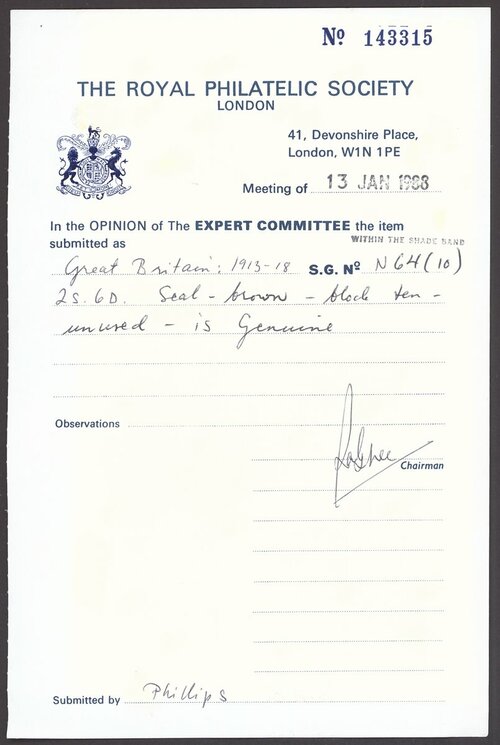 Nº 143315
THE ROYAL PHILATELIC SOCIETY
LONDON
41, Devonshire Place,
London, W1N 1PE
Meeting of 13 JAN 1988
In the OPINION of The EXPERT COMMITTEE the item
submitted as
WITHIN THE SHADE BAND
Great Britain: 1913-18 S.G. Nº N64(10)
2S. 6D. Seal - brown - block ten -
unused - is Genuine
Observations
Chairman
Submitted by Phillips